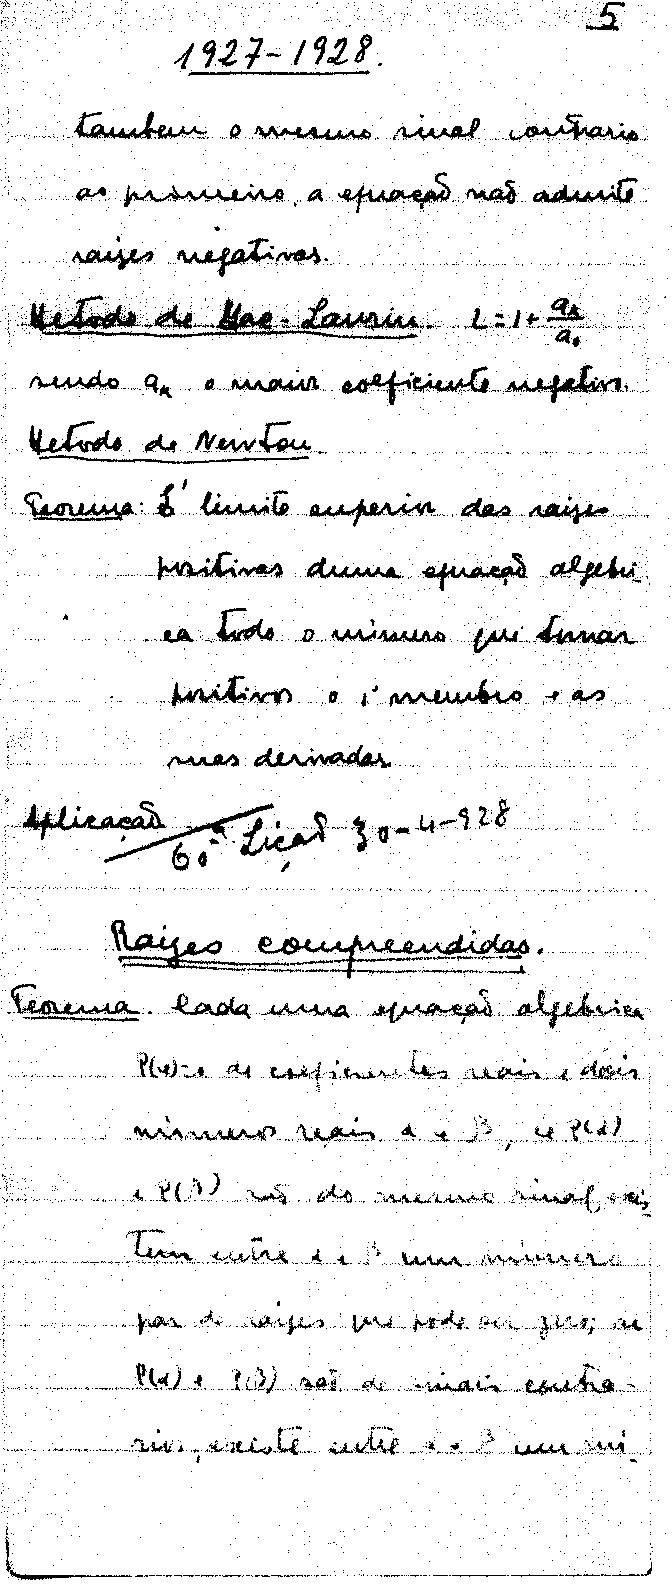 5
1927-1928.
tambem o mesmo sinal contrario
ao primeiro, a equação não admite
raizes negativas.
Metodo de Mac-Laurin. L=1+ aₖ/a₀
sendo aₖ o maior coeficiente negativo.
Metodo de Newton
Teorema: É limite superior das raizes
positivas duma equação algebri-
ca todo o número que tornar
positivos o 1º membro e as
suas derivadas.
Aplicação
60ª Lição 30-4-928
Raizes compreendidas.
Teorema. Cada uma equação algebrica
P(x)=0 de coeficientes reais e dois
números reais α e β, se P(α)
e P(β) são do mesmo sinal, exis-
tem entre α e β um número
par de raizes que pode ser zero; se
P(α) e P(β) são de sinais contra-
rios, existe entre α e β um nú-